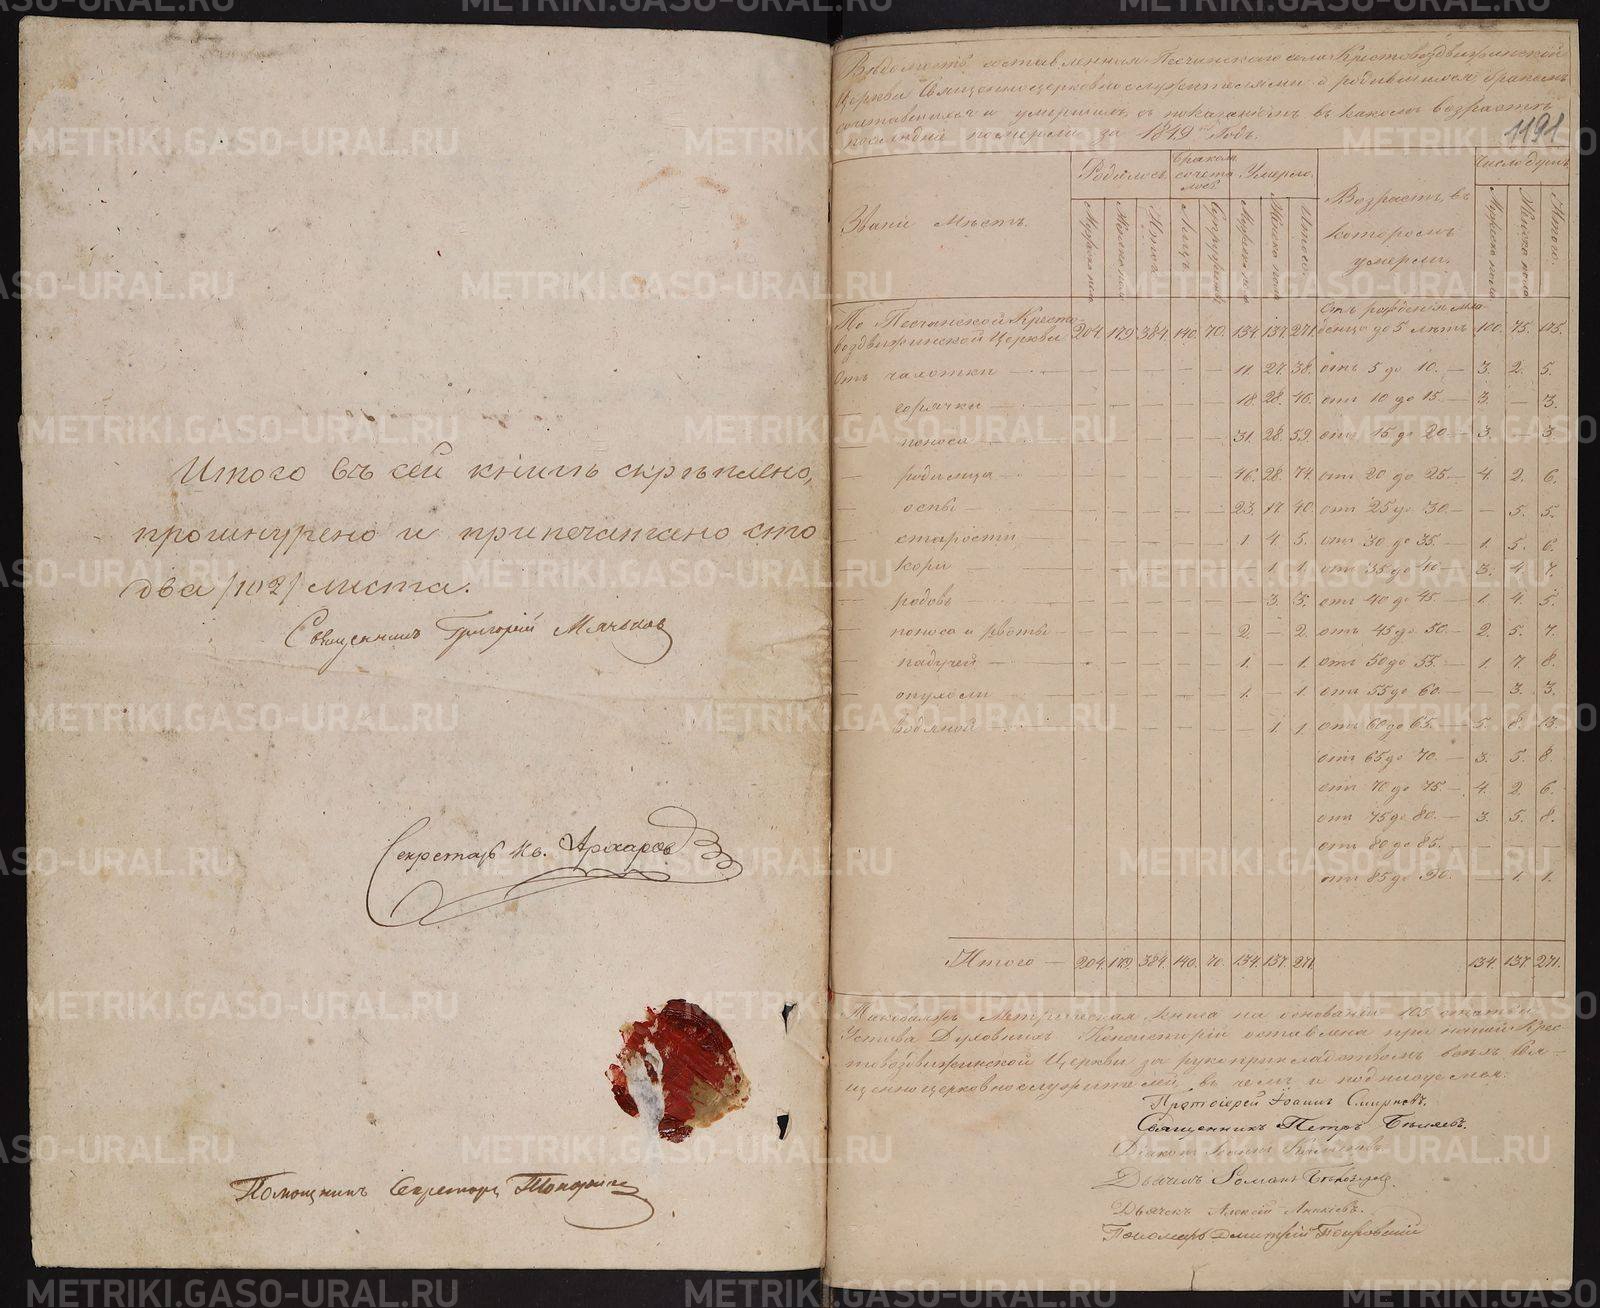 Итого въ сей книгѣ скрѣплено,
прошнурено и припечатано сто
два /102/ листа.
Священникъ Григорій Мячьков
Секретарь Кв. Архаров
Помощникъ Секретаря
1191
Вѣдомость составленная Песчанскаго села Крестовоздвиженской
Церкви Священноцерковнослужителями о родившихся бракомъ
сочетавшихся и умершихъ, съ показаніемъ въ какомъ возрастѣ
послѣдніе померли за 1849 годъ.
Званіе мѣстъ. Родилось Бракомъ сочеталось Умерло Возрастъ, въ которомъ умерли. Число душъ
Мужеска пола Женска пола Итого Лицъ Супружествъ Мужеска пола Женска пола Итого. Мужеска пола Женска пола Итого.
По Песчанской Кресто- отъ рожденія мла
воздвиженской Церкви 204. 179. 384. 140. 70. 134. 137. 271. денца до 5 лѣтъ 100. 75. 175.
Отъ чахотки — — — — — — 11. 27. 38. отъ 5 до 10. — 3. 2. 5.
— горячки — — — — — 18. 28. 46. отъ 10 до 15. — 3. — 3.
— поноса — — — — — 31. 28. 59. отъ 15 до 20. — 3. — 3.
— родимца — — — — — 46. 28. 74. отъ 20 до 25 — 4. 2. 6.
— оспы — — — — — 23. 17. 40. отъ 25 до 30. — — 5. 5.
— старости — — — — — 1. 4. 5. отъ 30 до 35. — 1. 5. 6.
— кори — — — — — — 1. 1. отъ 35 до 40 — 3. 4. 7.
— родовъ — — — — — — 3. 3. отъ 40 до 45. — 1. 4. 5.
— поноса и рвоты — — — — — 2. — 2. отъ 45 до 50. — 2. 5. 7.
— падучей — — — — — 1. — 1. отъ 50 до 55. — 1. 7. 8.
— опухоли — — — — — 1. — 1. отъ 55 до 60. — — 3. 3.
— водяной — — — — — — 1. 1. отъ 60 до 65. — 5. 8. 13.
отъ 65 до 70. — 3. 5. 8.
отъ 70 до 75 — 4. 2. 6.
отъ 75 до 80. — 3. 5. 8.
отъ 80 до 85. — — — —
отъ 85 до 90. — 1. 1.
Итого — 204. 179. 384. 140. 70. 134. 137. 271. 134. 137. 271.
Таковажъ Метрическая книга на основаніи 105 статьи
Устава Духовныхъ Консисторій оставлена при нашей Крес
товоздвиженской Церкви за рукоприкладствомъ всѣхъ Свя-
щенноцерковнослужителей, въ чемъ и подписуемся:
Протоіерей Іоаннъ Смирновъ.
Священникъ Петръ Бѣляевъ.
Діаконъ Іоаннъ
Дьячекъ Романъ
Дьячекъ Алексѣй Аникіевъ.
Пономарь Дмитрій Покровскій
METRIKI.GASO-URAL.RU